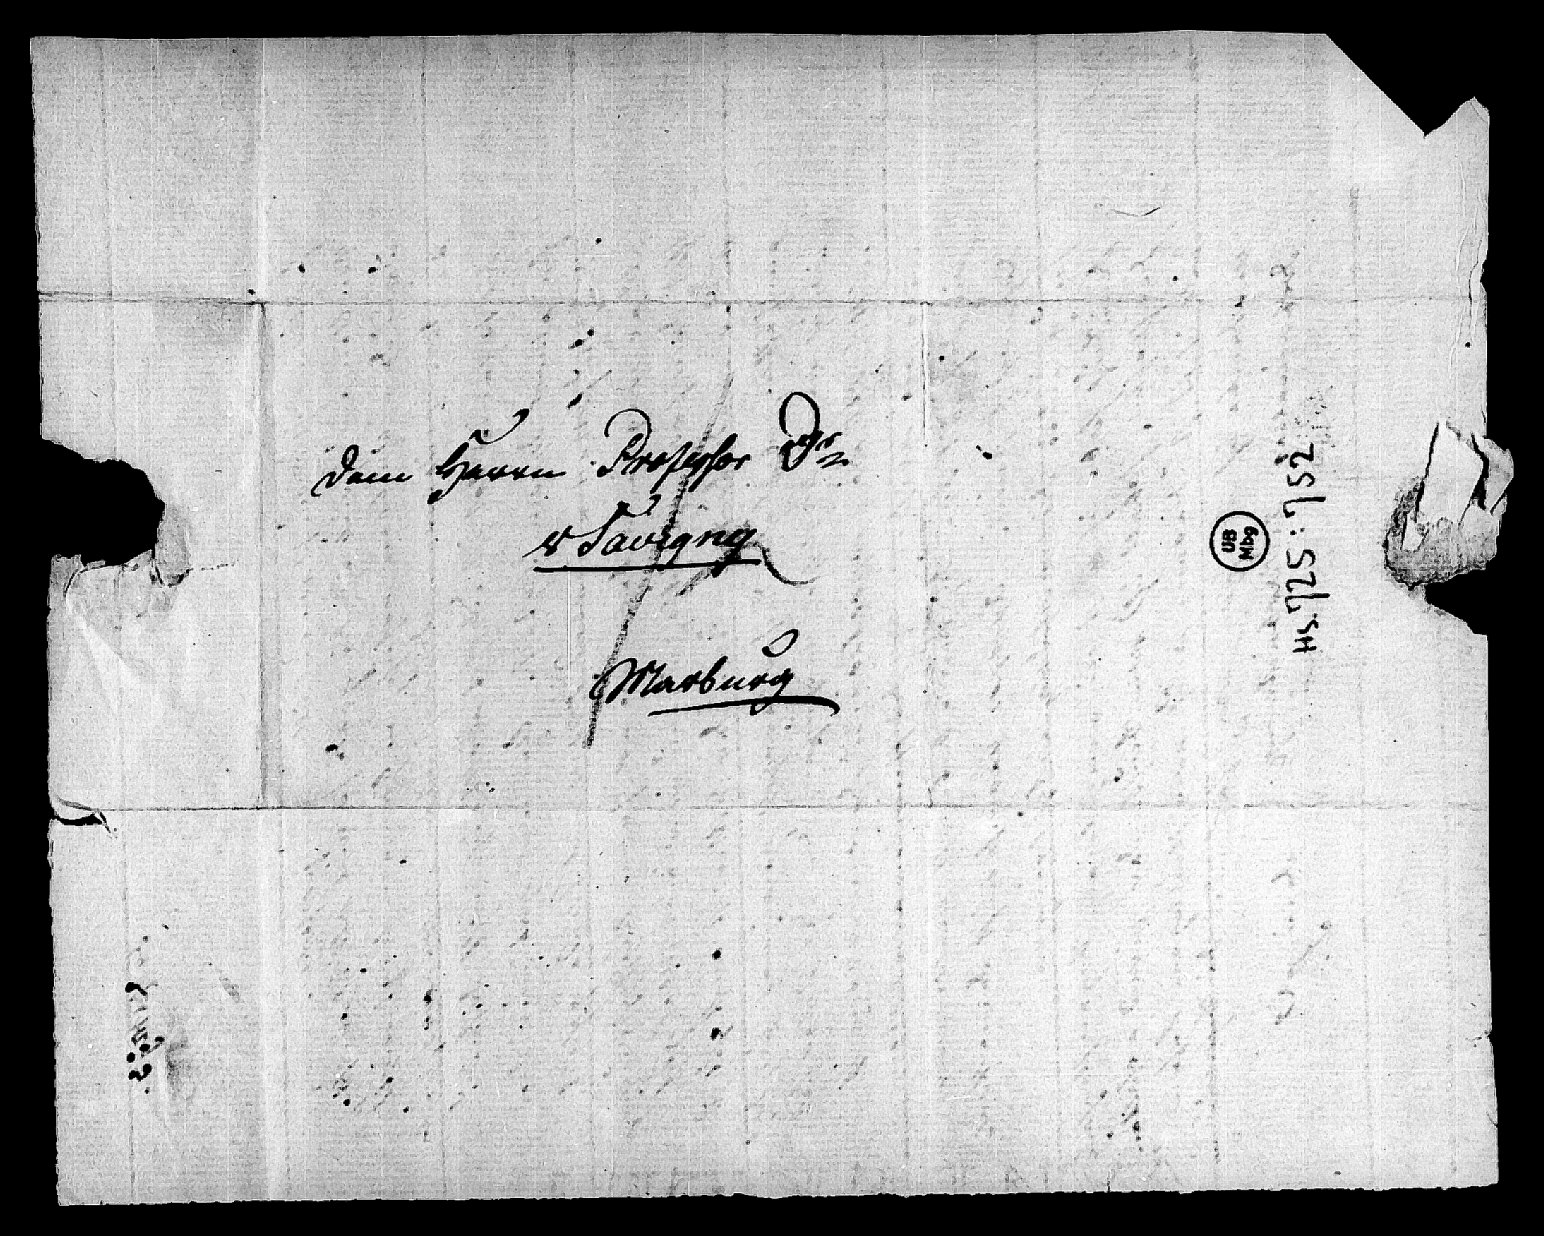 Dem Herrn Professor Dr
v Savigny
Marburg
UB
Mbg
Hs. 725:752